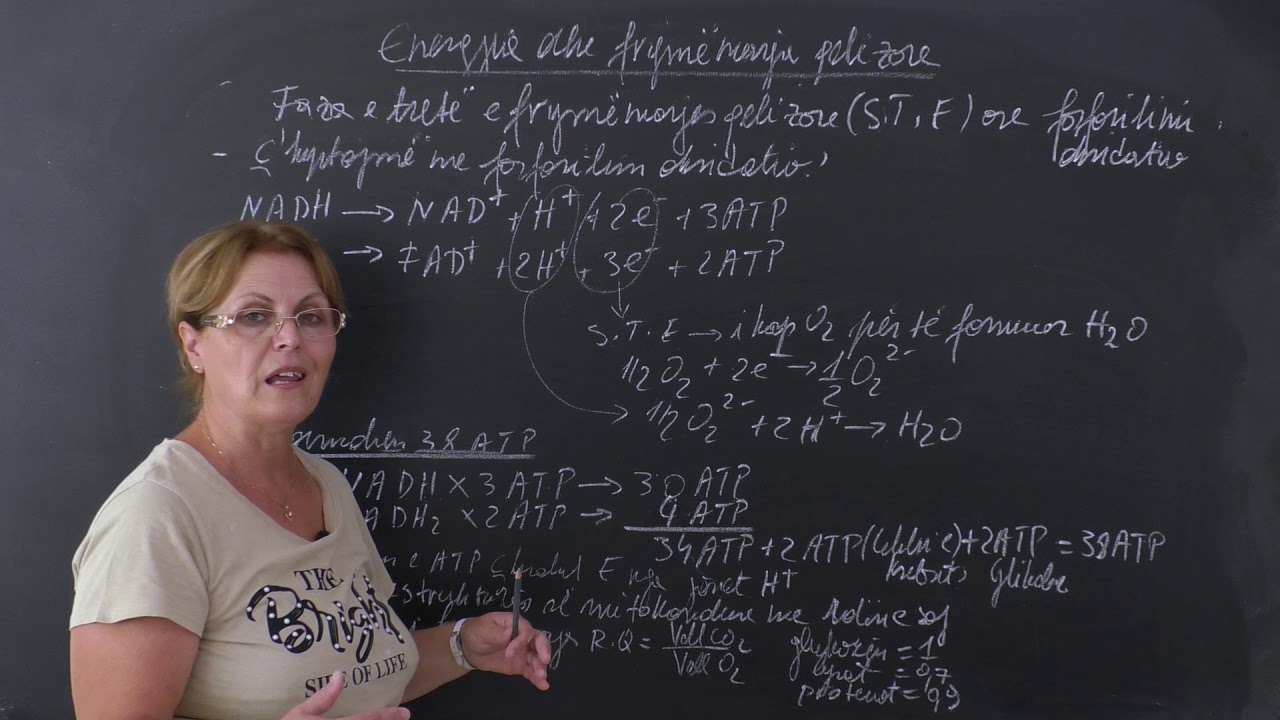 Energjia dhe frymëmarrja qelizore
Faza e tretë e frymëmarrjes qelizore (S.T.E) ose fosforilimi
oksidativ
- Ç'kuptojmë me fosforilim oksidativ?
NADH → NAD⁺ + H⁺ + 2e⁻ + 3ATP
→ FAD⁺ + 2H⁺ + 3e⁻ + 2ATP
S.T.E → i kap O₂ për të formuar H₂O
1/2O₂ + 2e⁻ → 1/2 O₂²⁻
1/2O₂²⁻ + 2H⁺ → H₂O
38 ATP
NADH × 3 ATP → 30 ATP
ADH₂ × 2 ATP → 4 ATP
34 ATP + 2 ATP (cikli e) + 2ATP = 38ATP
Krebsit
e ATP E nga jonet H⁺
e mitokondrive me rolin e saj
R.Q = Vëll CO₂ / Vëll O₂
glukozën = 1
= 0,7
proteinat = 99
THE
Bright
SIDE OF LIFE